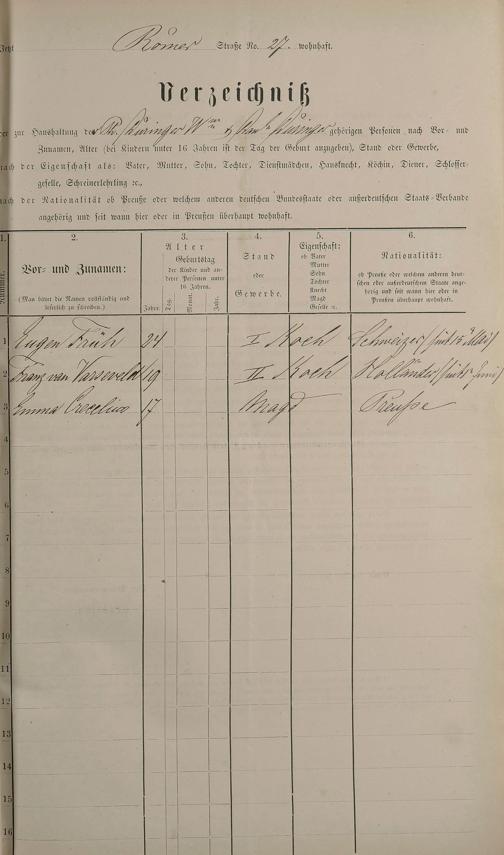 Jetzt Römer Straße No. 27. wohnhaft.
Verzeichniß
der zur Haushaltung der Ph. Thüringer Wwe gehörigen Personen nach Vor- und
Zunamen, Alter (bei Kindern unter 16 Jahren ist der Tag der Geburt anzugeben), Stand oder Gewerbe,
nach der Eigenschaft als: Vater, Mutter, Sohn, Tochter, Dienstmädchen, Hausknecht, Köchin, Diener, Schlosser-
geselle, Schreinerlehrling ꝛc.,
nach der Nationalität ob Preuße oder welchem anderen deutschen Bundesstaate oder außerdeutschen Staats-Verbande
angehörig und seit wann hier oder in Preußen überhaupt wohnhaft.
1.
Nummer.
2.
Vor- und Zunamen:
(Man bittet die Namen vollständig und
leserlich zu schreiben.)
3.
Alter
Geburtstag
der Kinder und an-
derer Personen unter
16 Jahren.
Jahre.
Tag.
Monat.
Jahr.
4.
Stand
oder
Gewerbe.
5.
Eigenschaft:
ob Vater
Mutter
Sohn
Tochter
Knecht
Magd
Geselle ꝛc.
6.
Nationalität:
ob Preuße oder welchem anderen deut-
schen oder außerdeutschen Staate ange-
hörig und seit wann hier oder in
Preußen überhaupt wohnhaft.
1 Eugen Früh 24 I Koch Schweizer (seit 15 Mai)
2 Franz van Varseveld 19 II Koch Holländer (seit Juni)
3 Emma Crecelius 17 Magd Preuße
4
5
6
7
8
9
10
11
12
13
14
15
16